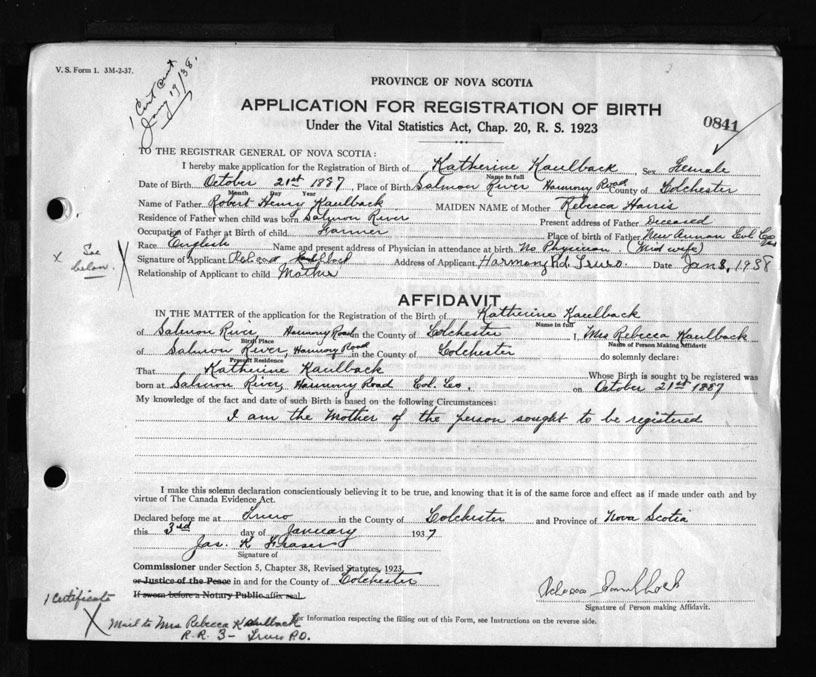 V. S. Form 1. 3M-2-37.
1 Cert sent
Jany 17/38.
PROVINCE OF NOVA SCOTIA
APPLICATION FOR REGISTRATION OF BIRTH
0841
Under the Vital Statistics Act, Chap. 20, R. S. 1923
TO THE REGISTRAR GENERAL OF NOVA SCOTIA:
I hereby make application for the Registration of Birth of Katherine Kaulback, Sex Female
Name in full
Date of Birth October 21st 1887, Place of Birth Salmon River Harmony Road County of Colchester
Month Day Year
Name of Father Robert Henry Kaulback MAIDEN NAME of Mother Rebecca Harris
Residence of Father when child was born Salmon River Present address of Father Deceased
Occupation of Father at Birth of child Farmer Place of birth of Father New Annan Col Co
Race English Name and present address of Physician in attendance at birth No Physician (Mid wife)
x See below. X
Signature of Applicant Rebecca Kaulback Address of Applicant Harmony Rd. Truro. Date Jan 3, 1938
Relationship of Applicant to child Mother
AFFIDAVIT
IN THE MATTER of the application of the Registration of the Birth of Katherine Kaulback
Name in full
of Salmon River, Harmony Road in the County of Colchester I, Mrs Rebecca Kaulback
Birth Place Name of Person Making Affidavit
of Salmon River, Harmony Road in the County of Colchester do solemnly declare:
Present Residence
That Katherine Kaulback Whose Birth is sought to be registered was
born at Salmon River, Harmony Road Col. Co. on October 21st 1887
My knowledge of the fact and date of such Birth is based on the following Circumstances:
I am the Mother of the person sought to be registered
I make this solemn declaration conscientiously believing it to be true, and knowing that it is of the same force and effect as if made under oath and by
virtue of The Canada Evidence Act.
Declared before me at Truro in the County of Colchester and Province of Nova Scotia
this 3rd day of January 1937
Jas. K Fraser
Signature of
Commissioner under Section 5, Chapter 38, Revised Statutes, 1923,
or Justice of the Peace in and for the County of Colchester
If sworn before a Notary Public affix seal.
Rebecca Kaulback
Signature of Person making Affidavit.
1 Certificate
X Mail to Mrs Rebecca Kaulback
For Information respecting the filling out of this Form, see Instructions on the reverse side.
R.R. 3 - Truro P.O.